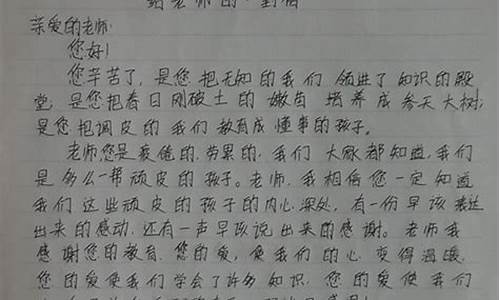 给老师的一封信
亲爱的老师:
您好!
您辛苦了，是您把无知的我们领进了知识的殿
堂，是您把春日刚破土的嫩苗培养成参天大树;
是您把调皮的我们教育成懂事的孩子。
老师,您是疲倦的,劳累的,我们大家都知道,我们
是多么一帮顽皮的孩子。老师,我相信您一定知道
我们这些顽皮的孩子的内心深处,有一份早该表达
出来的感动,还有一声早该说出来的感谢。老师我
感谢您的教育,您的爱,使我们的心变得温暖,
您的爱使我们学会了许多知识,您的爱使我们